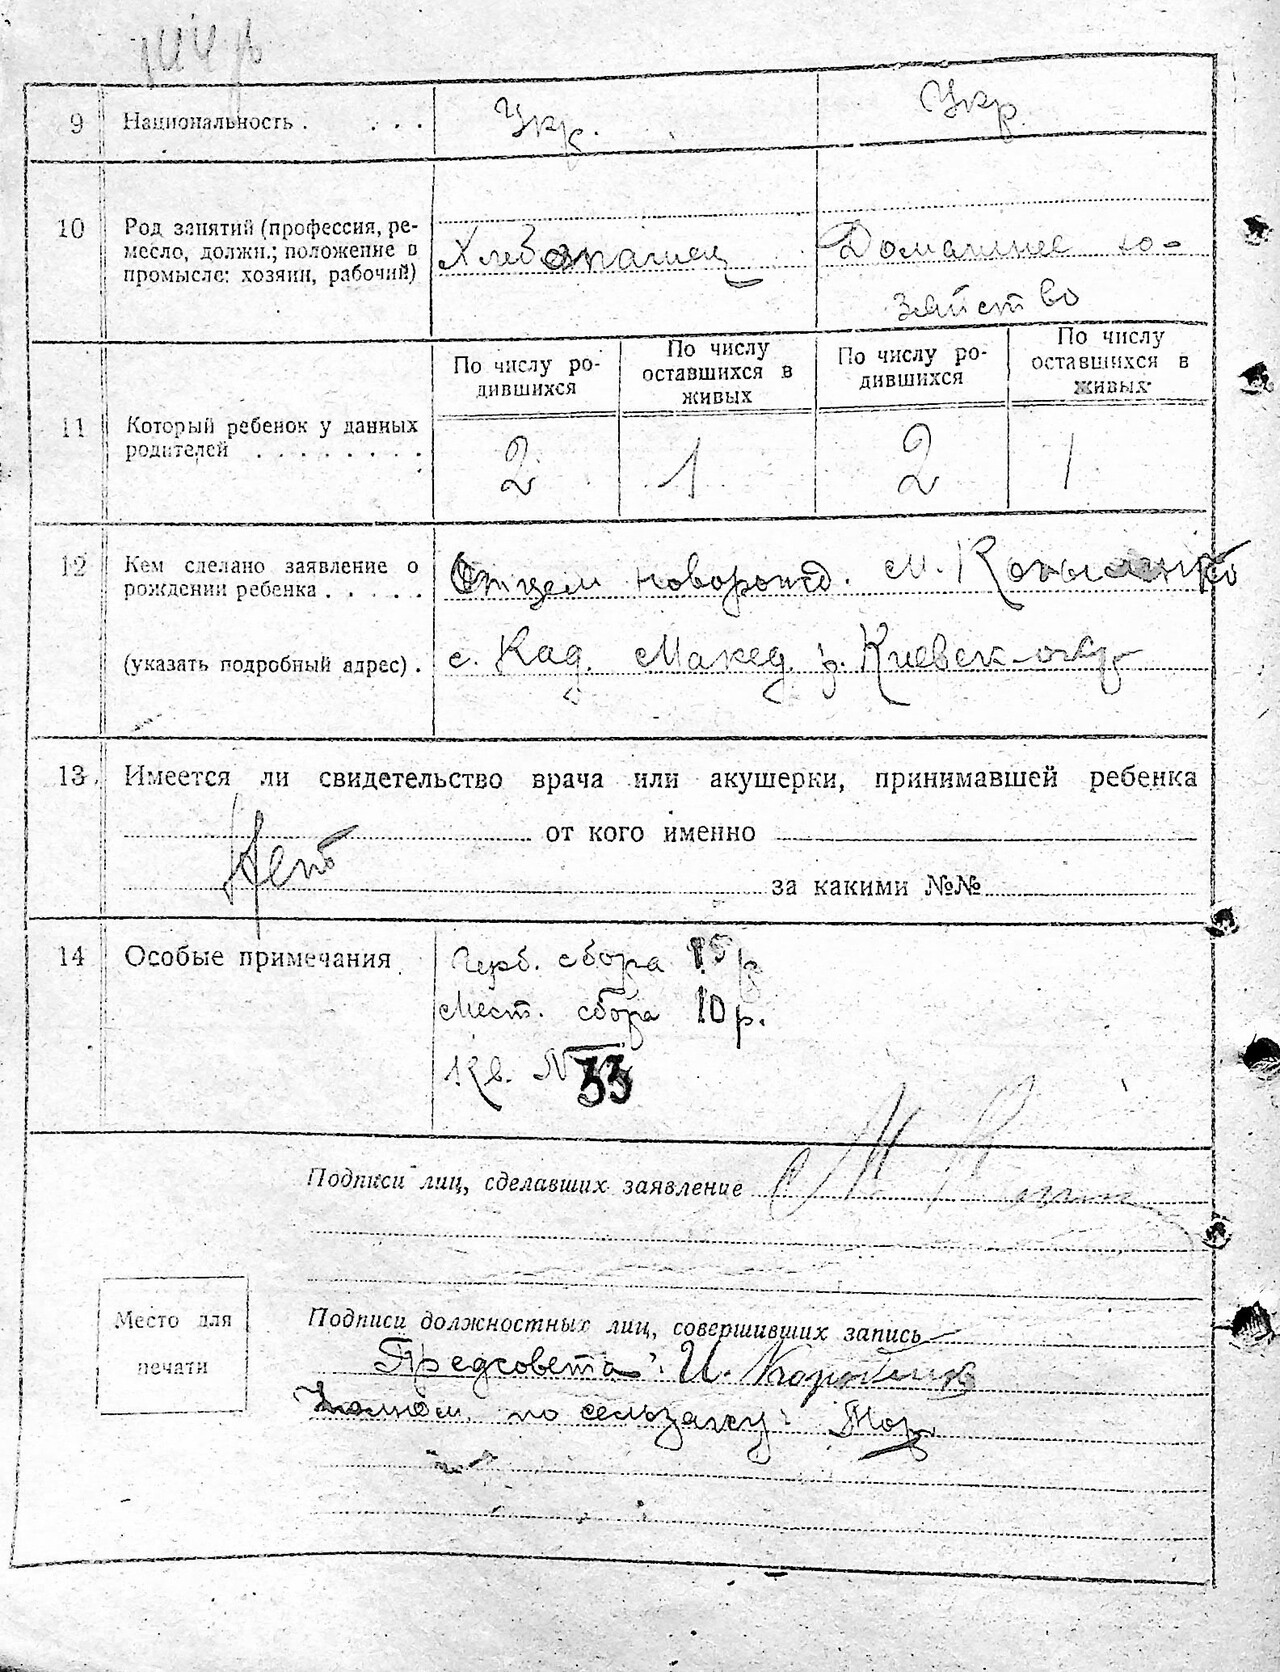 9 Национальность . . . . Укр. Укр.
10 Род занятий (профессия, ре-
месло, должн.; положение в
промысле: хозяин, рабочий)
Хлебопашец Домашнее хо-
зяйство
По числу ро-
дившихся
По числу
оставшихся в
живых
По числу ро-
дившихся
По числу
оставшихся в
живых
11 Который ребенок у данных
родителей . . . . . . . .
2 1 2 1
12 Кем сделано заявление о
рождении ребенка . . . . .
Отцем новорожд. М.
(указать подробный адрес) .
с. Кад. Макед. р. Киевск. окр.
13. Имеется ли свидетельство врача или акушерки, принимавшей ребенка
Нет от кого именно
за какими №№
14 Особые примечания
Герб. сбора 15 р
Мест. сбора 10 р.
Кв. № 33
Подписи лиц, сделавших заявление М.
Место для
печати
Подписи должностных лиц, совершивших запись
Предсовета: И.
по сельзагсу: